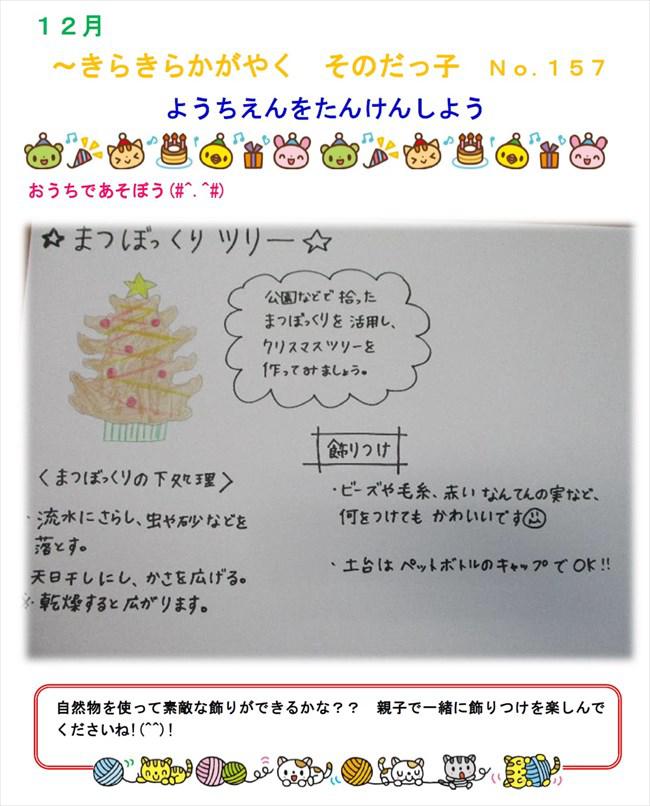 １２月
～きらきらかがやく　そのだっ子　Ｎｏ.１５７
ようちえんをたんけんしよう
おうちであそぼう(#^.^#)
☆まつぼっくりツリー☆
公園などで拾った
まつぼっくりを活用し、
クリスマスツリーを
作ってみましょう。
飾りつけ
〈まつぼっくりの下処理〉
・流水にさらし、虫や砂などを
落とす。
天日干しにし、かさを広げる。
※乾燥すると広がります。
・ビーズや毛糸、赤いなんてんの実など、
何をつけてもかわいいです
・土台はペットボトルのキャップでOK!!
自然物を使って素敵な飾りができるかな？？　親子で一緒に飾りつけを楽しんで
くださいね!(^^)!